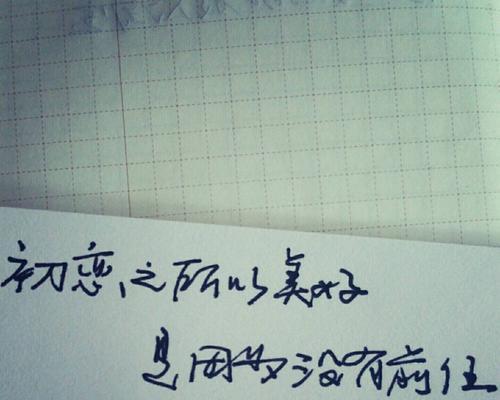 初恋之所以美好
是因为没有前任